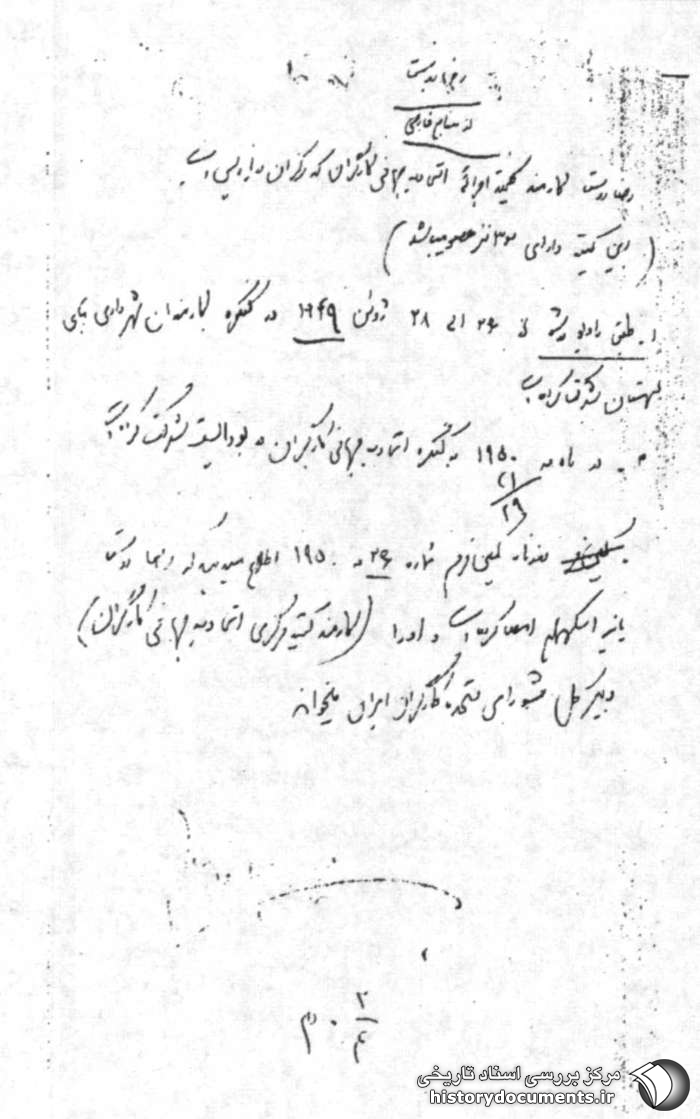 رضا روستا
از منابع خارجی
رضا روستا کارمند کمیته اجرائی اتحادیه جهانی کارگران که مرکز آن در پاریس است
(این کمیته دارای نفر عضو میباشد)
۱- طبق رادیو ۲۶ الی ۲۸ ژوئن ۱۹۴۹ در کنگره کارمندان شهرداری های
لهستان شرکت کرده است
۲- در ماه مه ۱۹۵۰ در کنگره اتحادیه جهانی کارگران در بوداپست شرکت کرده است
۲۱
۲۹
کمینفرم شماره ۲۶ مه ۱۹۵۰ اطلاع میدهد که رضا روستا
بیانیه استکهلم امضا کرده است و او را (کارمند کمیته مرکزی اتحادیه جهانی کارگران)
دبیر کل شورای متحده کارگران ایران میخواند
۲
۴
مرکز بررسی اسناد تاریخی
historydocuments.ir